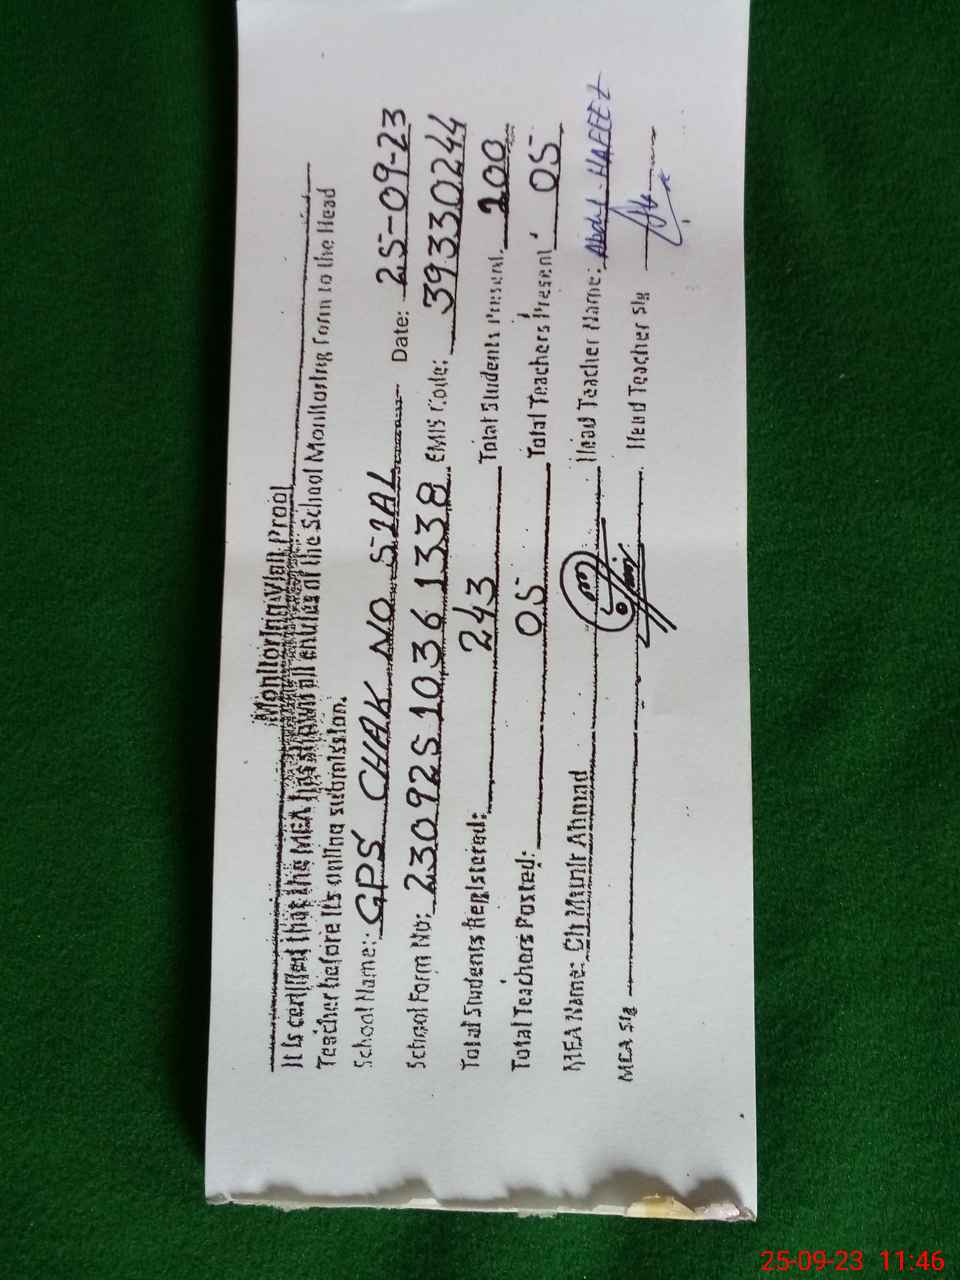 Monitoring Visit Proof
It is certified that the MEA has shown all entries of the School Monitoring Form to the Head
Teacher before its online submission.
School Name: GPS CHAK NO SIAL Date: 25-09-23
School Form No: 230925 1036 1338 EMIS Code: 39330244
Total Students Registered: 243 Total Students Present: 200
Total Teachers Posted: 05 Total Teachers Present: 05
MEA Name: Ch Munir Ahmad Head Teacher Name: Abdul HAFEEZ
MEA Sig Head Teacher Sig
25-09-23 11:46